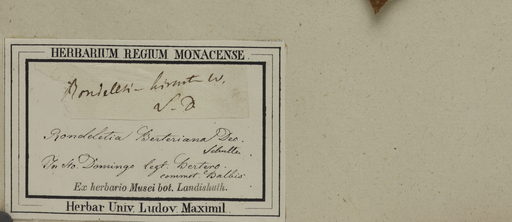 HERBARIUM REGIUM MONACENSE.
Rondeleti hirsut W.
S. D
Rondeletia Berteriana Dec.
Schultes
In Sto. Domingo legt. Bertero.
commt. Balbis
Ex herbario Musei bot. Landishuth.
Herbar. Univ. Ludov. Maximil.